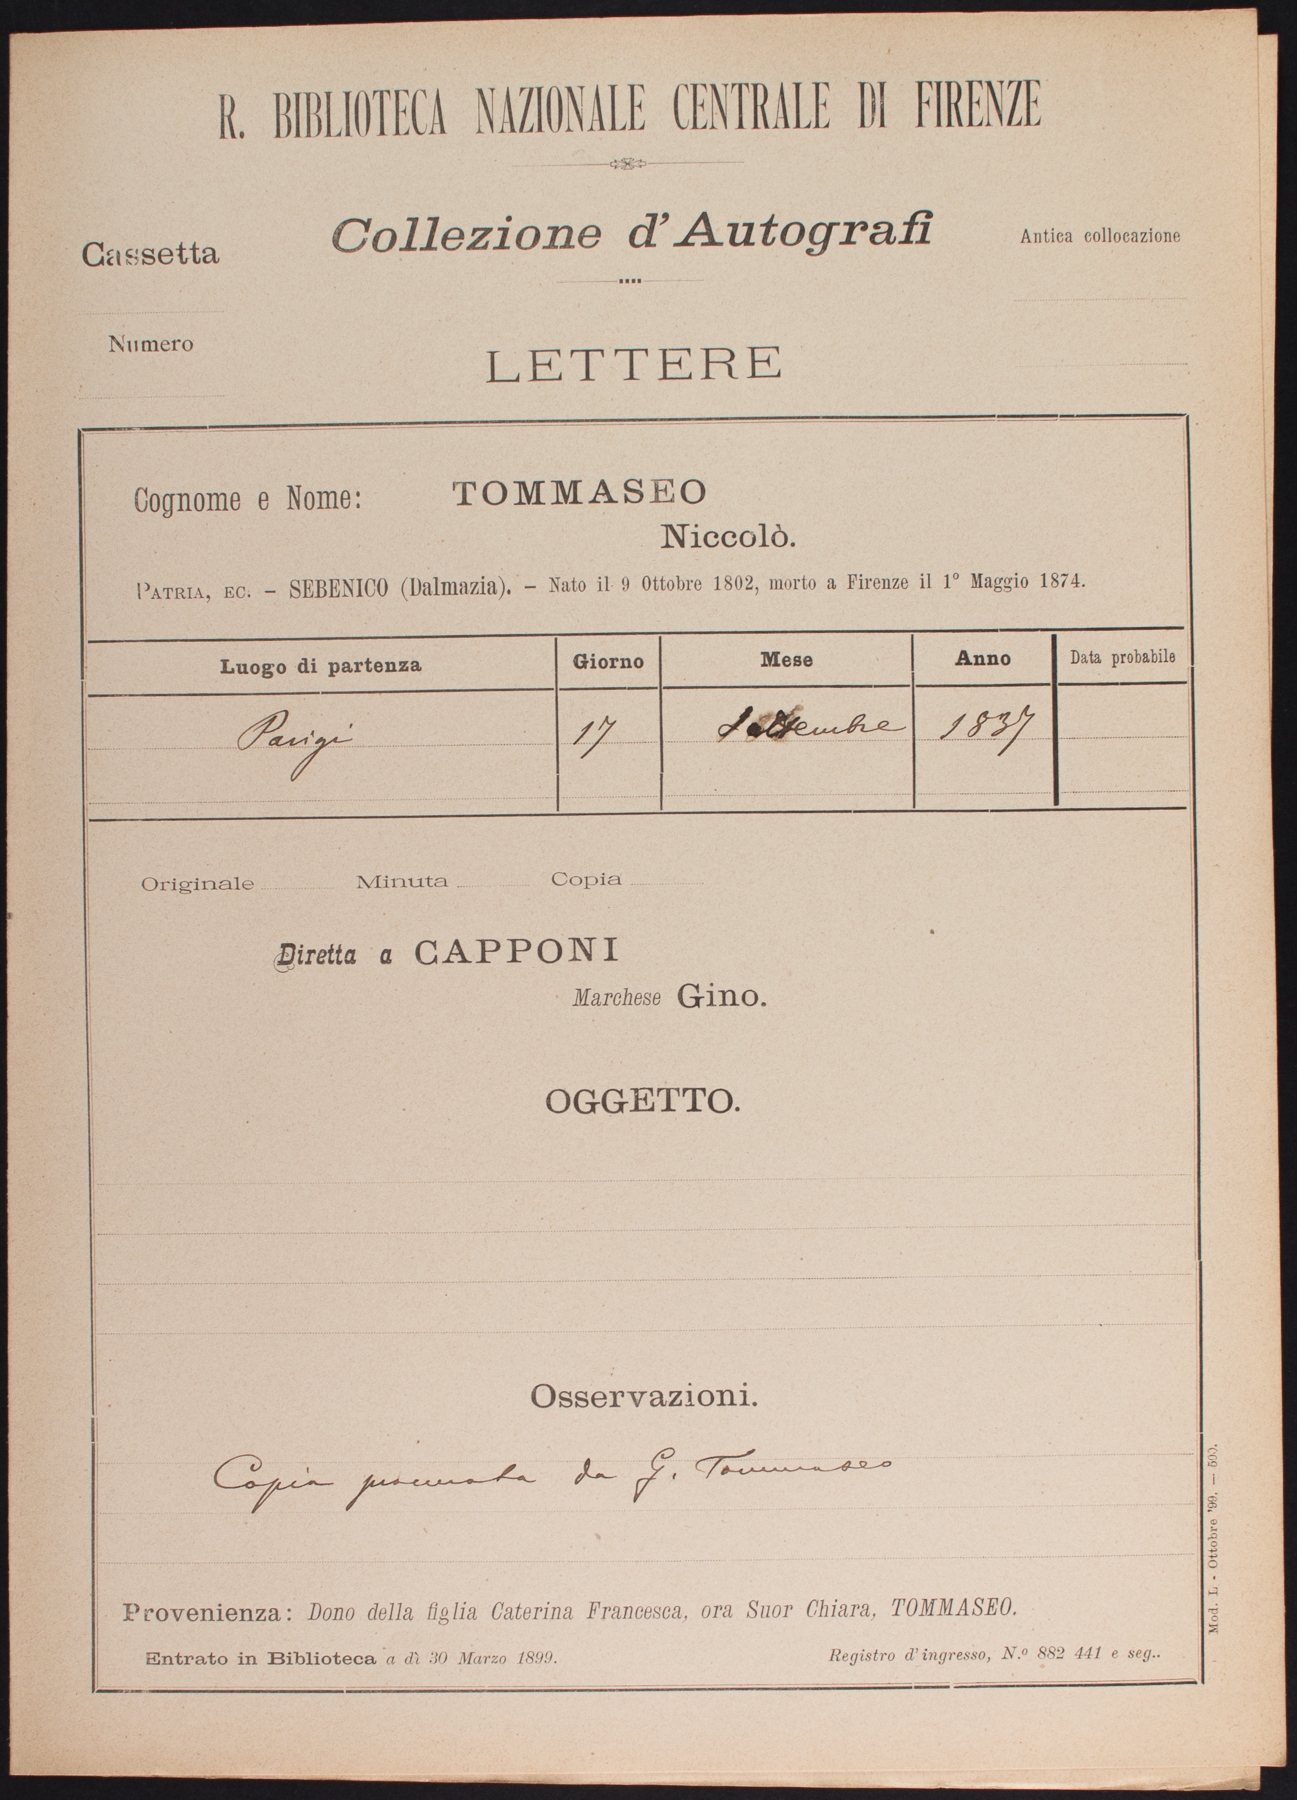 R. BIBLIOTECA NAZIONALE CENTRALE DI FIRENZE
Collezione d'Autografi
Cassetta
Antica collocazione
Numero
LETTERE
Cognome e Nome: TOMMASEO
Niccolò.
PATRIA, EC. – SEBENICO (Dalmazia). – Nato il 9 Ottobre 1802, morto a Firenze il 1° Maggio 1874.
Luogo di partenza Giorno Mese Anno Data probabile
Parigi 17 Settembre 1837
Originale Minuta Copia
Diretta a CAPPONI
Marchese Gino.
OGGETTO.
Osservazioni.
Copia procurata da G. Tommaseo
Provenienza: Dono della figlia Caterina Francesca, ora Suor Chiara, TOMMASEO.
Entrato in Biblioteca a dì 30 Marzo 1899.
Registro d'ingresso, N.º 882 441 e seg..
Mod. L - Ottobre '99. — 500.